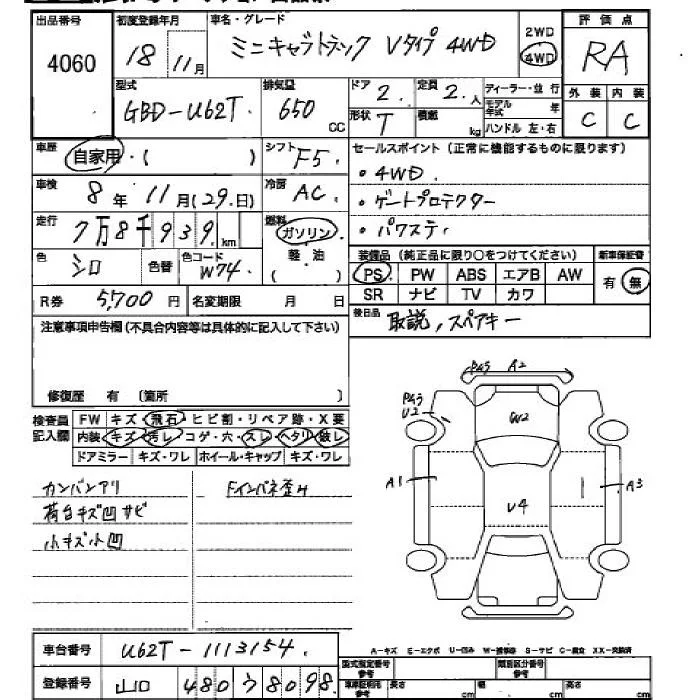 出品番号 初度登録年月 車名・グレード 2WD 評価点
4060 18年 11月 ミニキャブトラック Vタイプ 4WD 4WD RA
型式 排気量 ドア 定員 ディーラー・並行 外装 内装
GBD-U62T 650 CC 2. 2.人 モデル年式 年 C C
形状 T 積載 kg ハンドル 左・右
車歴 自家用・( ) シフト F5. セールスポイント(正常に機能するものに限ります)
車検 8年 11月(29.日) 冷房 AC. ・4WD.
走行 7万8千939km 燃料 ガソリン. ・ゲートプロテクター
軽・油 ( ) ・パワステ
色 シロ 色替 色コード W74 装備品(純正品に限り○をつけてください) 新車保証書
PS PW ABS エアB AW 有・無
R券 5,700円 名変期限 月 日 SR ナビ TV カワ
注意事項申告欄(不具合内容等は具体的に記入して下さい) 後日品 取説, スペアキー
修復歴 有 〔箇所 〕
検査員記入欄 FW キズ・飛石・ヒビ割・リペア跡・X要
内装 キズ・汚レ・コゲ・穴・スレ・ヘタリ・欠レ
ドアミラー キズ・ワレ ホイール・キャップ キズ・ワレ
カンバンアリ Fインパネ歪み
荷台キズ凹サビ
小キズ小凹
A2
U2
W2
A1
A3
U4
A-キズ E-エクボ U-凹み W-補修跡 S-サビ C-腐食 XX-交換済
車台番号 U62T-1113154. 型式指定番号 参考 類別区分番号 参考
登録番号 山口 480 8098 車車証明用 参考 長さ cm 幅 cm 高さ cm